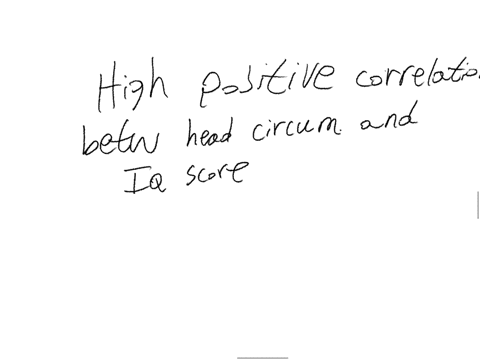 High positive correlatio
betw head circum. and
IQ score